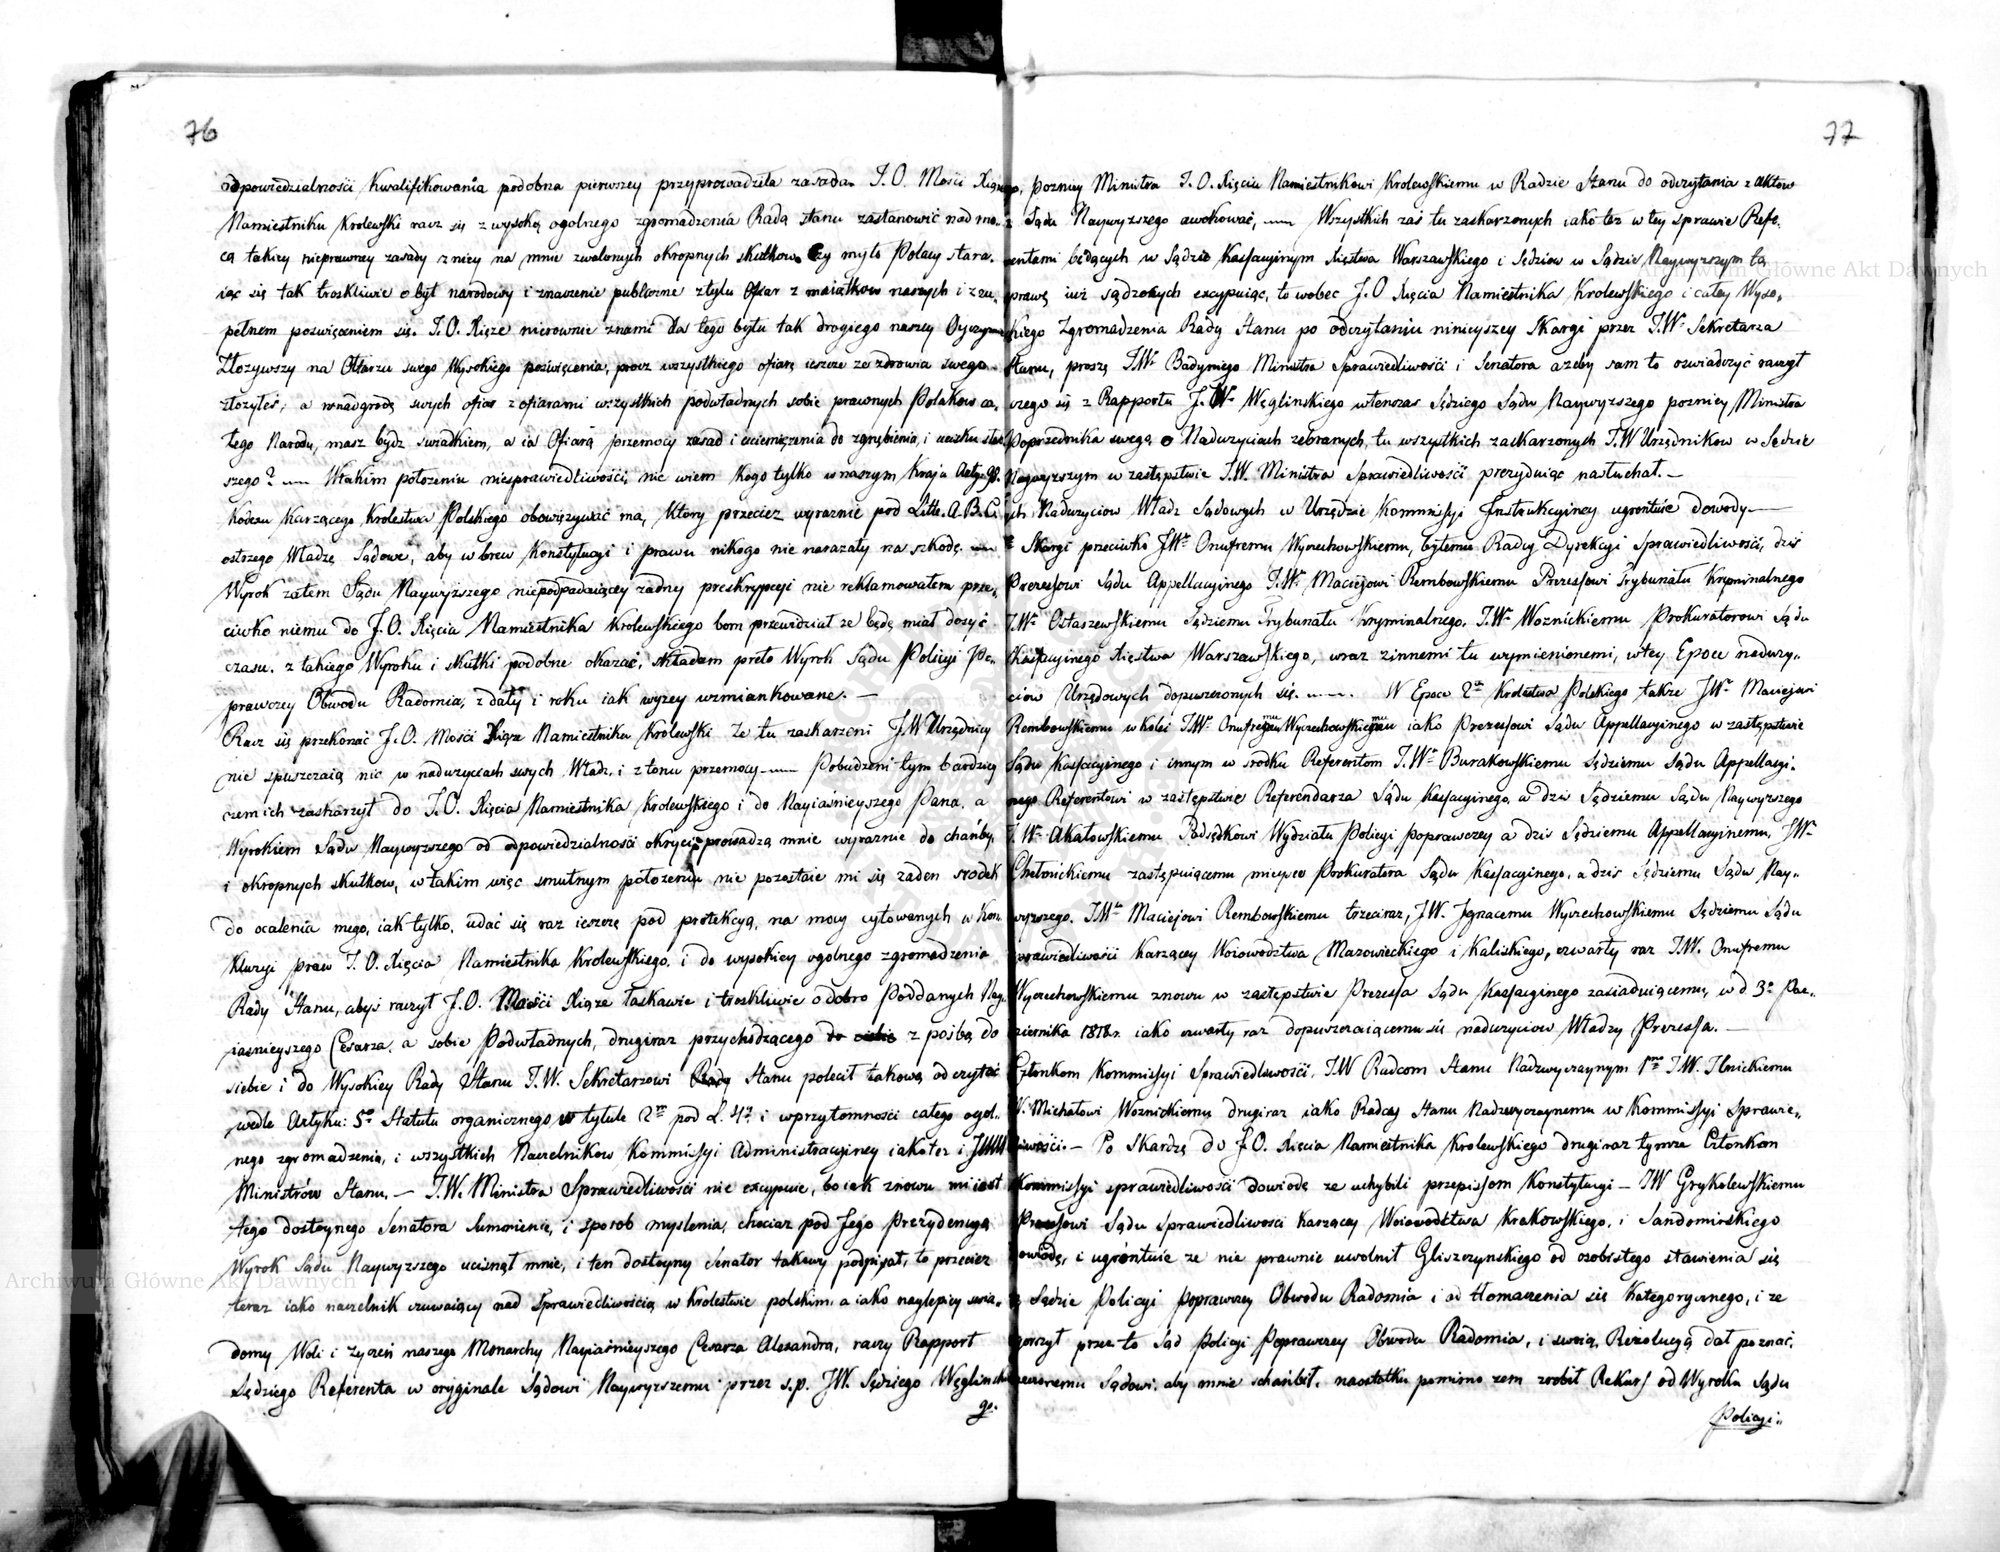 76
odpowiedzialności kwalifikowania podobna pierwszey przyprowadziła zasada. J.O. Mości Xiąże
Namiestniku Krolewski racz się z wysoką ogolnego zgromadzenia Radą stanu zastanowić nad mo„
cą takiey nieprawney zasady z niey na mnie zwalonych okropnych skutkow. Czy myśl Polacy stara„
iąc się tak troskliwie o byt narodowy i znaczenie publiczne z tylu Ofiar z maiątkow naszych i zu„
pełnem poswięceniem się. J.O. Xiąże nierownie z nami dla tego bytu tak drogiego naszey Oyczyzny
Złożywszy na Ołtarzu swego Wysokiego poświęcenia, procz wszystkiego ofiarę ieszcze ze zdrowia swego
złożyłeś; a w nadgrodę swych ofiar z ofiarami wszystkich podwładnych sobie prawnych Polakow ca„
łego Narodu, masz bydz swiadkiem, a ia Ofiarą przemocy zasad i uciemiężenia do zgnębienia, i ucisku
szego? — Wtakim położeniu niesprawiedliwości, nie wiem kogo tylko w naszym Kraju Artyk. 98.
Kodexu Karzącego Krolestwa Polskiego obowiązywać ma, ktory przecież wyraznie pod Litt. A. B. C.
ostrzego Władzę Sądowe, aby wbrew Konstytucyi i prawu nikogo nie narażały na szkodę. —
Wyrok zatem Sądu Naywyższego niepodpadaiącey żadney preskrypcyi nie reklamowałem prze„
ciwko niemu do J.O. Xięcia Namiestnika Krolewskiego bom przewidział że będę miał dosyć
czasu. z takiego Wyroku i skutki podobne okazać, składam preto Wyrok Sądu Policyi Po„
prawczey Obwodu Radomia, z daty i roku iak wyzey wzmiankowane. —
Racz się przekonać J.O. Mości Xiąże Namiestniku Krolewski że tu zaskarzeni J.W. Urzędnicy
nie spuszczaią nic w naduzyciach swych Władz, i z tonu przemocy — Pobudzeni tym bardziey
żem ich zaskarzył do J.O. Xięcia Namiestnika Krolewskiego i do Nayiaśnieyszego Pana, a
Wyrokiem Sądu Naywyzszego od odpowiedzialności okryci, prowadzą mnie wyraznie do chańby,
i okropnych skutkow, w takim więc smutnym położeniu nie pozostaie mi się żaden srodek
do ocalenia mego, iak tylko, udać się raz ieszcze pod protekcyą, na mocy cytowanych w Kon
kluzyi praw J.O. Xięcia Namiestnika Krolewskiego, i do wysokiey ogolnego zgromadzenia
Rady Stanu, abyś raczył J.O. Mości Xiąże łaskawie i troskliwie o dobro Poddanych Nay„
iasnieyszego Cesarza, a sobie Podwładnych, drugiraz przychodzącego do ciebie z prośbą do
siebie i do Wysokiey Rady Stanu J.W. Sekretarzowi Rady Stanu polecił takową odczytać
wedle Artyku: 5º Statutu organicznego w tytule 2m pod L. 4ą i w przytomności całego ogol„
nego zgromadzenia, i wszystkich Naczelnikow Kommissyi Administracyiney iako też i JWW
Ministrów Stanu. — J.W. Ministra Sprawiedliwości nie excypuie, bo iak znowu mi iest
tego dostoynego Senatora sumienie, i sposob myslenia, chociaż pod Jego Prezydencyą
Wyrok Sądu Naywyzszego ucisnął mnie, i ten dostoyny Senator takowy podpisał, to przecież
teraz iako naczelnik czuwaiący nad Sprawiedliwością w Krolestwie polskim, a iako naylepiey swia„
domy Woli i życzeń naszego Monarchy Nayiaśnieyszego Cesarza Alexandra, raczy Rapport
Sędziego Referenta w oryginale Sądowi Naywyzszemu przez s.p. JW. Sędziego Węglińskie
go.
77
pozniey Ministra J.O. Xięciu Namiestnikowi Krolewskiemu w Radzie Stanu do odczytania z aktow
Sądu Naywyzszego awokować, — Wszystkich zaś tu zaskarzonych iako też w tey sprawie Refe„
rentami będących w Sądzie Kassacyinym Xięstwa Warszawskiego i Sędziow w Sądzie Naywyzszym tą
sprawę iuż sądzonych excypuiąc, to wobec J.O Xięcia Namiestnika Krolewskiego i całey Wyso„
kiego Zgromadzenia Rady Stanu po odczytaniu ninieyszey Skargi przez J.W. Sekretarza
Stanu, proszę JW. Badyniego Ministra Sprawiedliwości i Senatora azeby sam to oswiadczyć raczył
czego się z Rapportu J.W. Węglinskiego wtenczas Sędziego Sądu Naywyzszego pozniey Ministra
Poprzednika swego, o Naduzyciach zebranych, tu wszystkich zaskarzonych J.W Urzędnikow w Sądzie
Naywyzszym w zastępstwie J.W. Ministra Sprawiedliwości prezyduiąc nasłuchał. —
ch Naduzyciow Władz Sądowych w Urzędzie Kommissyi Instrukcyiney ugrontuie dowody —
Skargi przeciwko JW. Onufremu Wyczechowskiemu, byłemu Radcy Dyrekcyi Sprawiedliwości, dziś
Prezesowi Sądu Appellacyinego J.W. Maciejowi Rembowskiemu Prezesowi Trybunału Kryminalnego
J.W. Ostaszewskiemu Sędziemu Trybunału Kryminalnego. J.W. Woznickiemu Prokuratorowi Sądu
Kassacyinego Xięstwa Warszawskiego, wraz z innemi tu wymienionemi, w tey Epoce naduzy„
ciow Urzędowych dopuszczonych się. —. W Epoce 2ey Krolestwa Polskiego także JW. Maciejowi
Rembowskiemu w kolei J.W. Onufremu Wyczechowskiemu iako Prezesowi Sądu Appellacyinego w zastępstwie
Sądu Kassacyinego i innym w srodku Referentom J.W. Burakowskiemu Sędziemu Sądu Appellacyi„
nego Referentowi w zastępstwie Referendarza Sądu Kassacyinego, a dziś Sędziemu Sądu Naywyzszego
J.W. Akałowskiemu Podsędkowi Wydziału Policyi poprawczey a dziś Sędziemu Appellacyinemu, JW.
Chełmickiemu zastępuiącemu mieysce Prokuratora Sądu Kassacyinego, a dziś Sędziemu Sądu Nay„
wyzszego. J.W. Maciejowi Rembowskiemu trzeciraz, J.W. Ignacemu Wyczechowskiemu Sędziemu Sądu
Sprawiedliwości Karzącey Woiewodztwa Mazowieckiego i Kaliskiego, czwarty raz J.W. Onufremu
Wyczechowskiemu znowu w zastępstwie Prezesa Sądu Kassacyinego zasiadaiącemu, w d. 3º Paz„
ziernika 1818 r. iako czwarty raz dopuszczaiącemu się naduzyciow Władzy Prezesa. —
Członkom Kommissyi Sprawiedliwości, J.W Radcom Stanu Nadzwyczaynym 1mo J.W. Ilnickiemu
W. Michałowi Woznickiemu drugiraz iako Radcy Stanu Nadzwyczaynemu w Kommissyi Sprawie„
dliwości. — Po Skardze do J.O. Xięcia Namiestnika Krolewskiego drugiraz tymże Członkom
Kommissyi sprawiedliwości dowiodę że uchybili przepissom Konstytucyi — JW Grykolewskiemu
Prezesowi Sądu Sprawiedliwości Karzącey Woiewodztwa Krakowskiego, i Sandomirskiego
dowiodę, i ugrontuie że nie prawnie uwolnił Gliszczynskiego od osobistego stawienia się
w Sądzie Policyi Poprawczey Obwodu Radomia i od tłomaczenia się Kategorycznego, i że
zgorszył przez to Sąd Policyi Poprawczey Obwodu Radomia, i swoią Rezolucyą dał poznać,
Sądowi, aby mnie schańbił, naostatku pomimo żem zrobił Rekurs od Wyroku Sądu
Policyi„
Archiwum Główne Akt Dawnych
Archiwum Główne Akt Dawnych